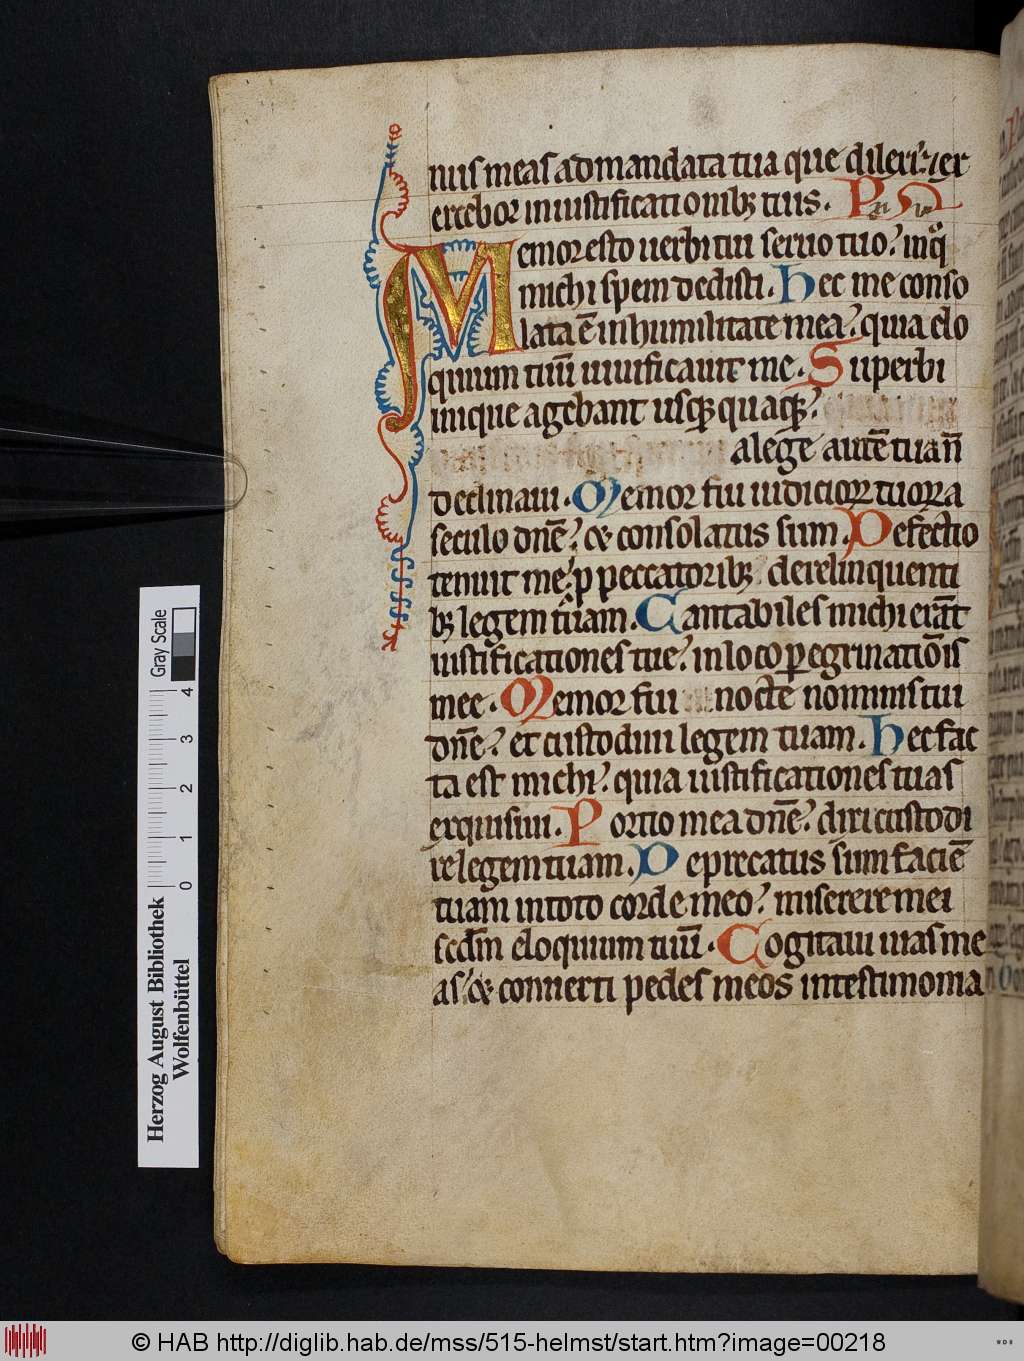 nus meas ad mandata tua que dilexi: et ex
ercebor in iustificationibꝫ tuis.
Memor esto uerbi tui seruo tuo? in q̊
michi spem dedisti. Hec me conso
lata ē in humilitate mea? quia elo
quium tuū uiuificauit me. Superbi
inique agebant usqꝫ quaqꝫ?
a lege autē tua n̄
declinaui. Memor fui iudicioꝝ tuoꝝ a
seculo dn̄e? & consolatus sum. Defectio
tenuit me? p peccatoribꝫ derelinquenti
bꝫ legem tuam. Cantabiles michi erāt
iustificationes tue? in loco ꝑegrinatiōis
mee. Memor fui nocte nominis tui
dn̄e? et custodiui legem tuam. Hec fac
ta est michi? quia iustificationes tuas
exquisiui. Portio mea dn̄e? dixi custodi
re legem tuam. Deprecatus sum faciē
tuam in toto corde meo? miserere mei
scdm̄ eloquium tuū. Cogitaui uias me
as? & conuerti pedes meos in testimonia
Herzog August Bibliothek
Wolfenbüttel
0 1 2 3 4
Gray Scale
© HAB http://diglib.hab.de/mss/515-helmst/start.htm?image=00218